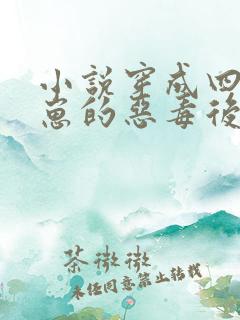 小說穿成四
崽的惡毒後
茶微微
未經同意禁止轉載